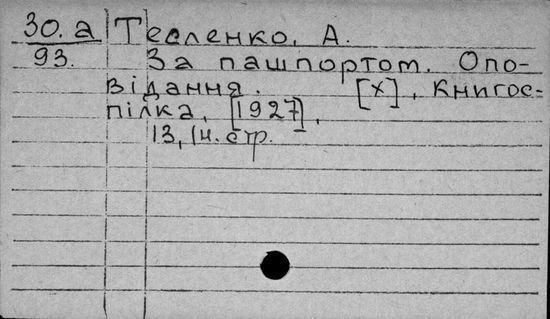 30.а Тесленко, А.
93. За пашпортом. Опо-
відання. [х], Книгос-
пілка, [1927],
13, 1н. стр.